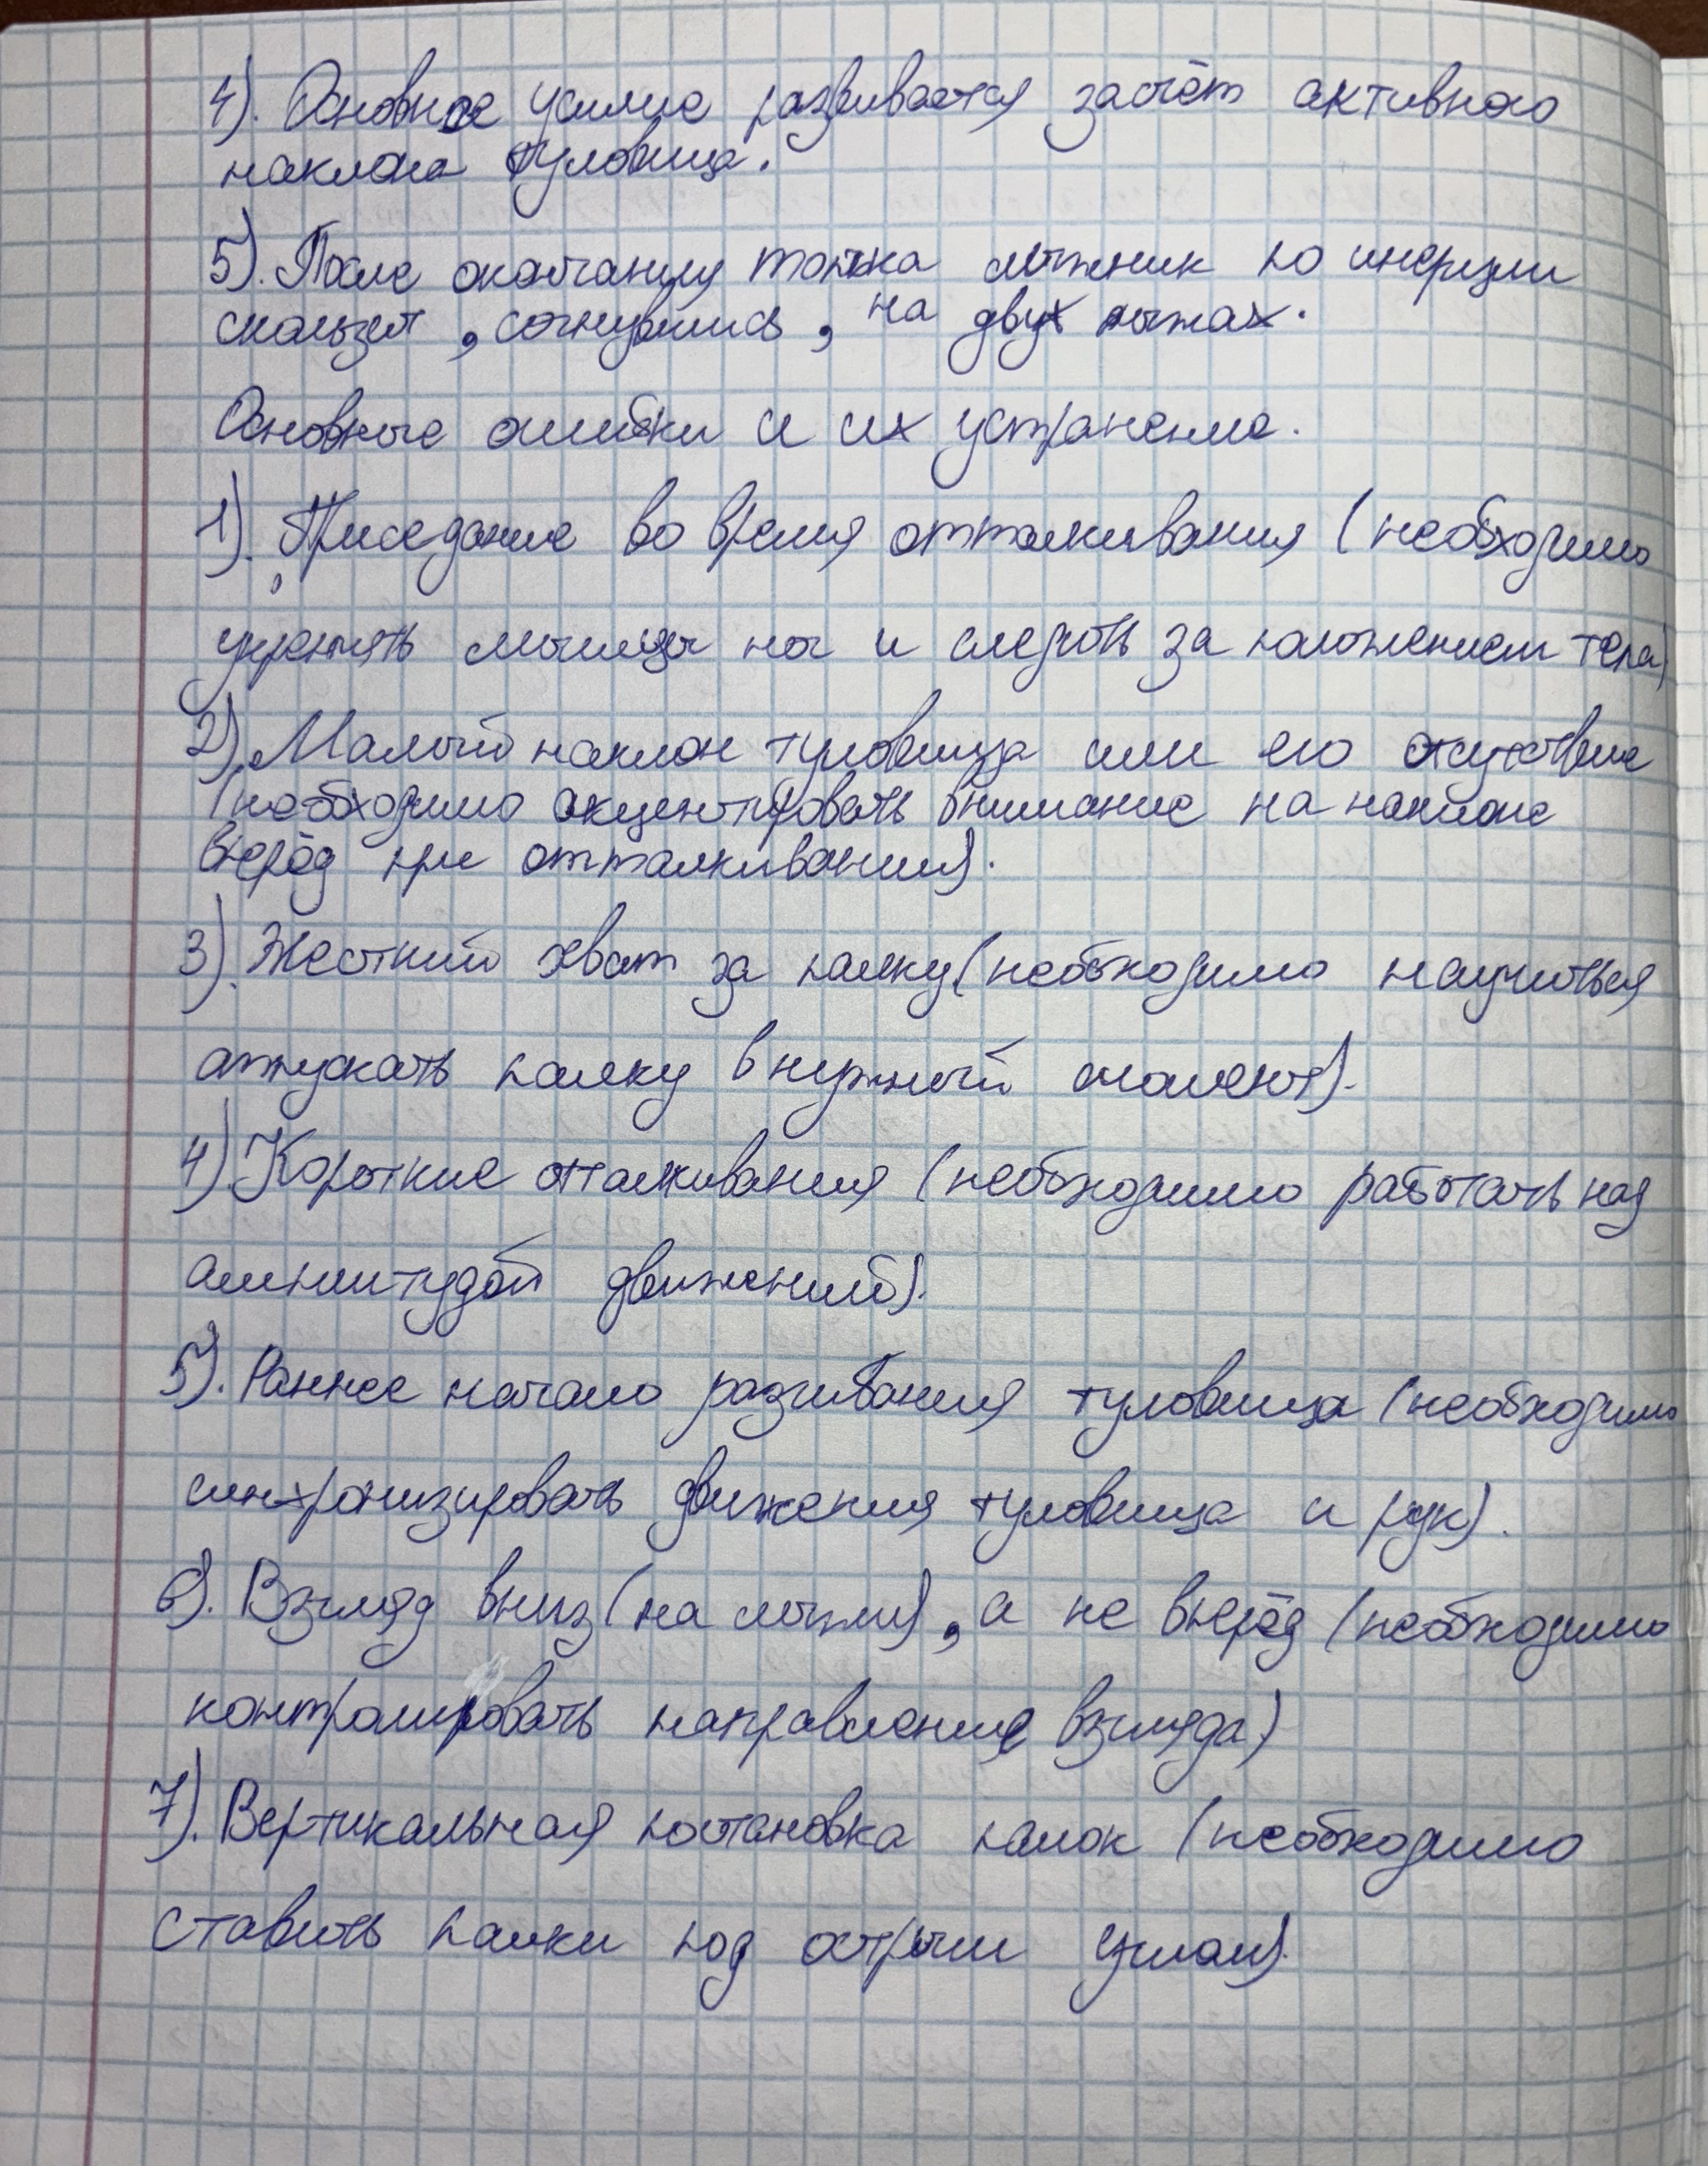 4). Основное усилие развивается засчёт активного
наклона туловища.
5). После окончания толчка лыжник по инерции
скользит, согнувшись, на двух лыжах.
Основные ошибки и их устранение.
1). Приседание во время отталкивания (необходимо
укреплять мышцы ног и следить за положением тела)
2). Малый наклон туловища или его отсутствие
(необходимо акцентировать внимание на наклоне
вперёд при отталкивании).
3). Жесткий хват за палку (необходимо научиться
отпускать палку в нужный момент).
4) Короткие отталкивания (необходимо работать над
амплитудой движений).
5). Раннее начало разгибания туловища (необходимо
синхронизировать движения туловища и рук).
6). Взгляд вниз (на лыжи), а не вперёд (необходимо
контролировать направление взгляда)
7). Вертикальная постановка палок (необходимо
ставить палки под острым углом).